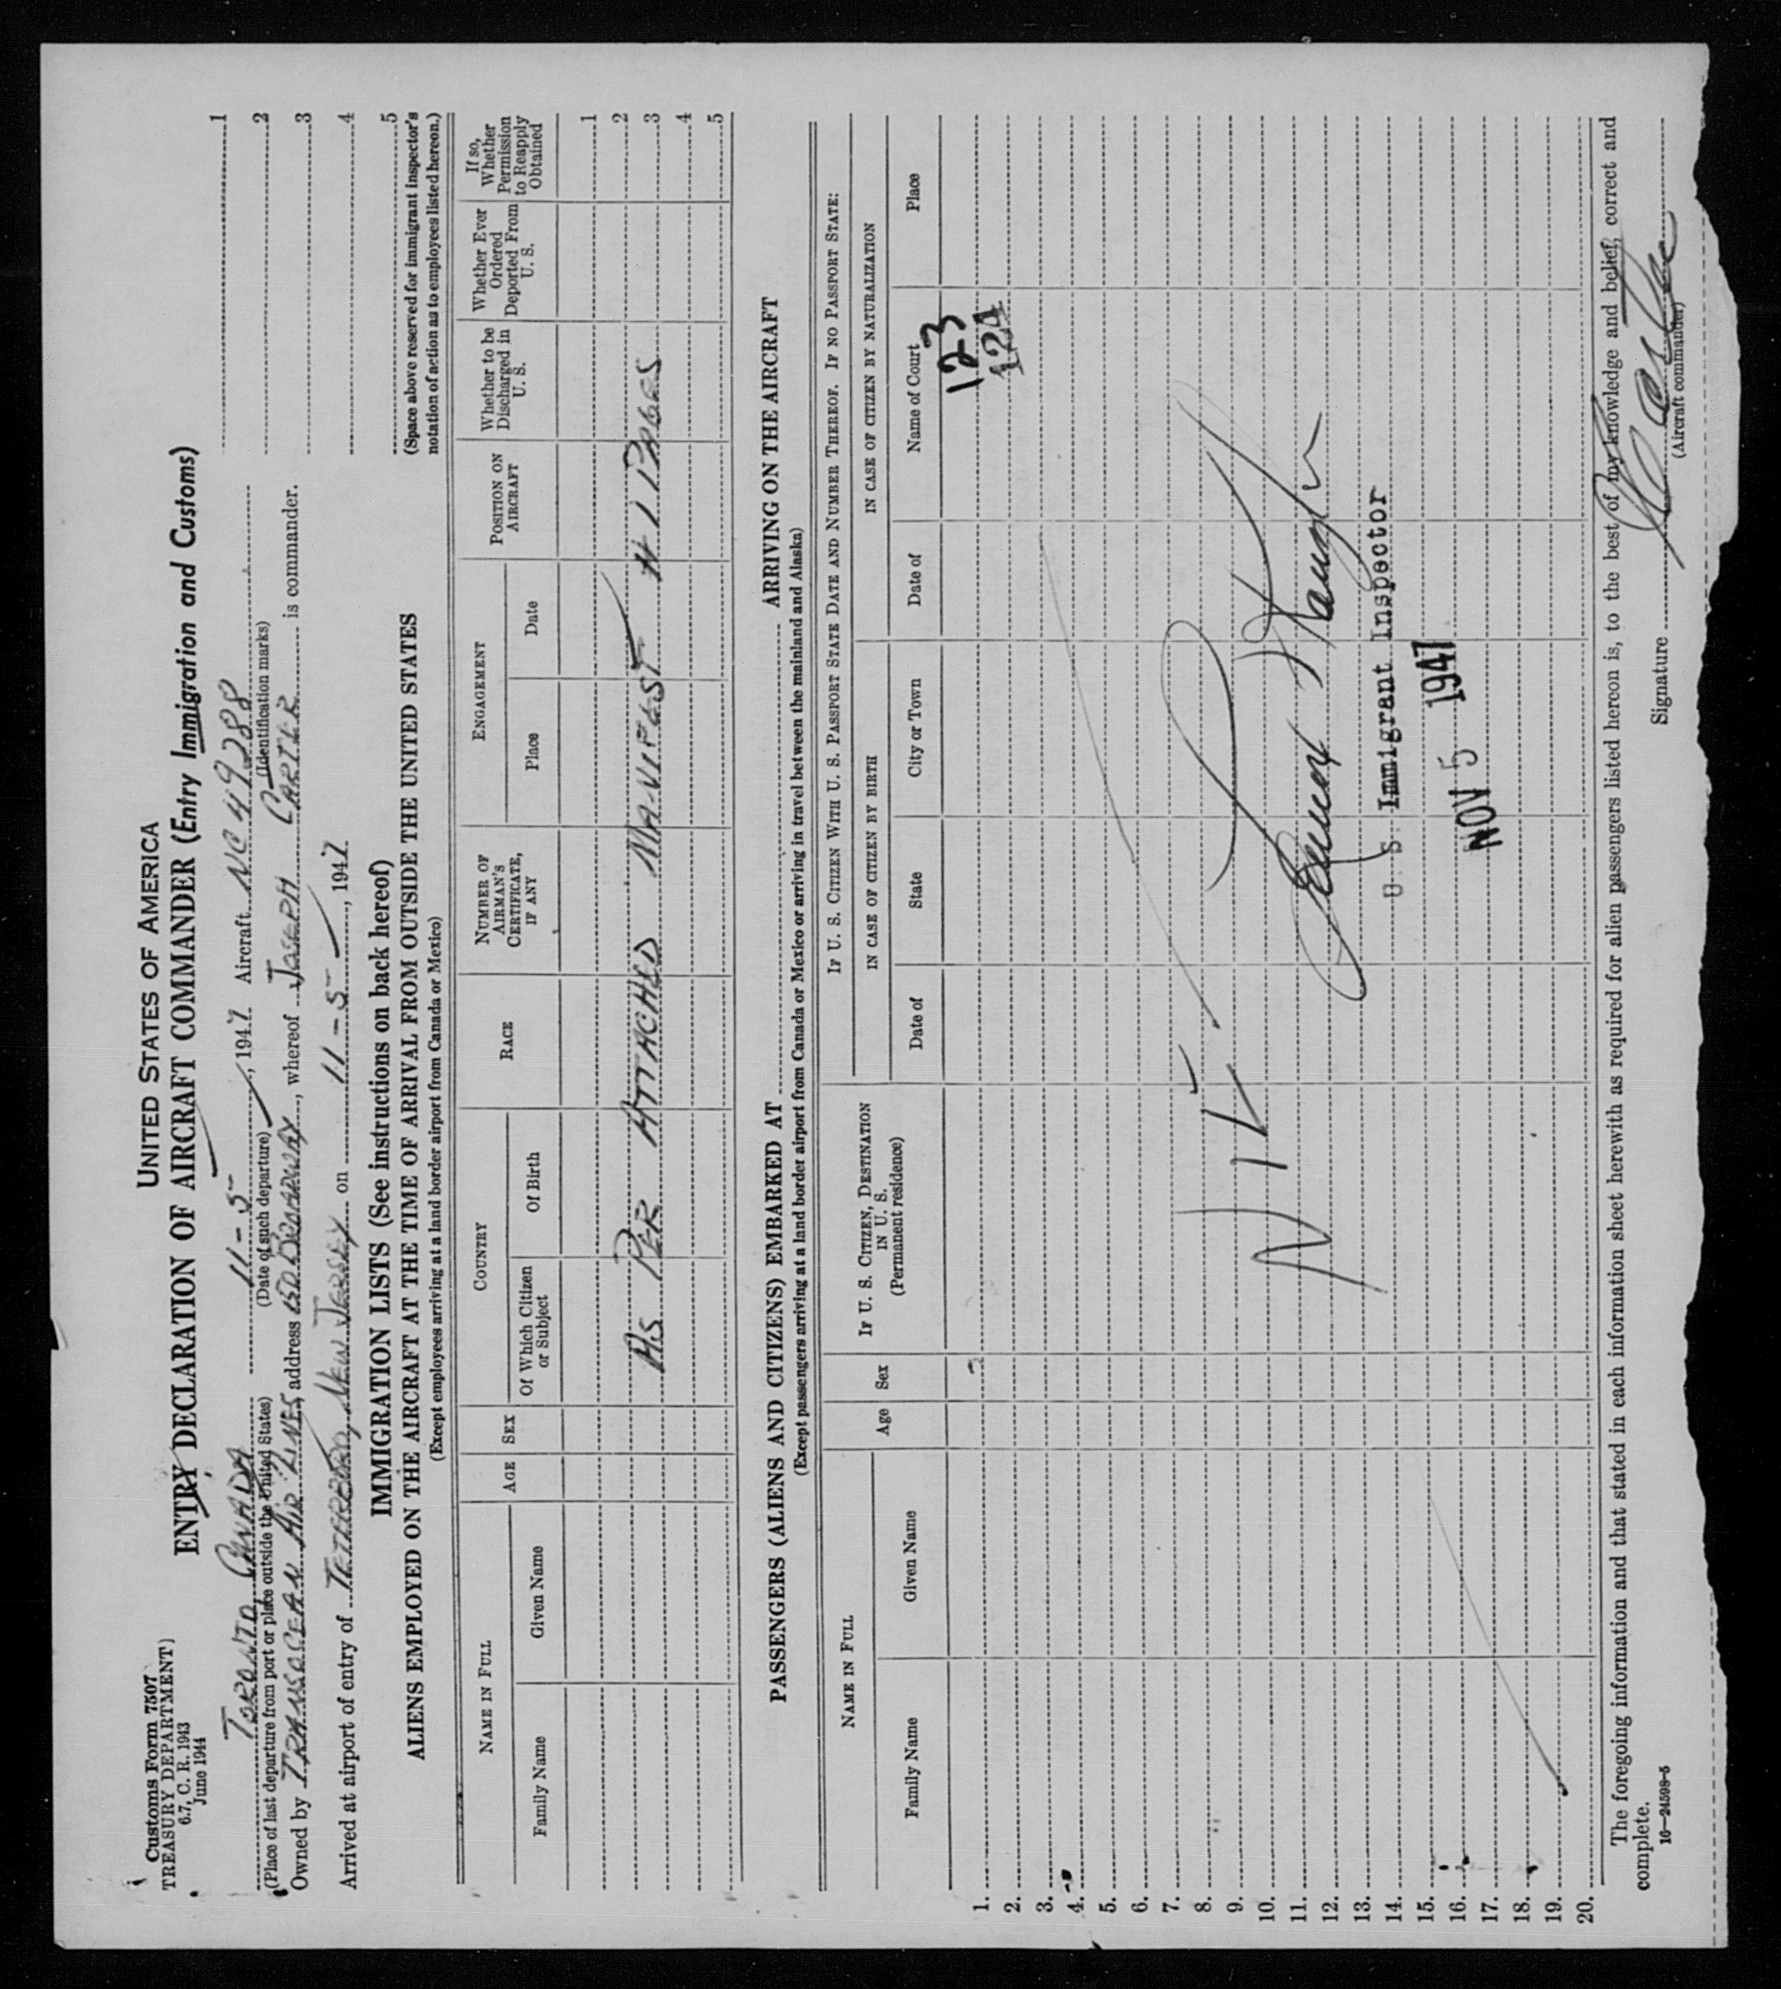 Customs Form 7507
TREASURY DEPARTMENT
6.7, C. R. 1943
June 1944
UNITED STATES OF AMERICA
ENTRY DECLARATION OF AIRCRAFT COMMANDER (Entry Immigration and Customs)
TORONTO, CANADA 11-5, 1947 Aircraft NC 49288
(Place of last departure from port or place outside the United States) (Date of such departure) (Identification marks)
Owned by TRANSOCEAN AIR LINES, address BROADWAY, whereof JOSEPH CARTER is commander.
Arrived at airport of entry of TETERBORO, NEW JERSEY on 11-5, 1947
1
2
3
4
5
(Space above reserved for immigrant inspector's
notation of action as to employees listed hereon.)
IMMIGRATION LISTS (See instructions on back hereof)
ALIENS EMPLOYED ON THE AIRCRAFT AT THE TIME OF ARRIVAL FROM OUTSIDE THE UNITED STATES
(Except employees arriving at a land border airport from Canada or Mexico)
NAME IN FULL
Family Name
Given Name
AGE
SEX
COUNTRY
Of Which Citizen or Subject
Of Birth
RACE
NUMBER OF AIRMAN'S CERTIFICATE, IF ANY
ENGAGEMENT
Place
Date
POSITION ON AIRCRAFT
Whether to be Discharged in U. S.
Whether Ever Ordered Deported From U. S.
If so, Whether Permission to Reapply Obtained
1
2
AS PER ATTACHED MANIFEST PAGES
3
4
5
PASSENGERS (ALIENS AND CITIZENS) EMBARKED AT ARRIVING ON THE AIRCRAFT
(Except passengers arriving at a land border airport from Canada or Mexico or arriving in travel between the mainland and Alaska)
NAME IN FULL
Family Name
Given Name
Age
Sex
IF U. S. CITIZEN, DESTINATION IN U. S.
(Permanent residence)
IF U. S. CITIZEN WITH U. S. PASSPORT STATE DATE AND NUMBER THEREOF. IF NO PASSPORT STATE:
IN CASE OF CITIZEN BY BIRTH
IN CASE OF CITIZEN BY NATURALIZATION
Date of
State
City or Town
Date of
Name of Court
Place
123
124
1.
2.
3.
4.
5.
6.
7.
8.
9.
10.
11.
12.
13.
14.
15.
16.
17.
18.
19.
20.
U. S. Immigrant Inspector
NOV 5 1947
The foregoing information and that stated in each information sheet herewith as required for alien passengers listed hereon is, to the best of my knowledge and belief, correct and
complete.
Signature
(Aircraft commander)
16—24598-5